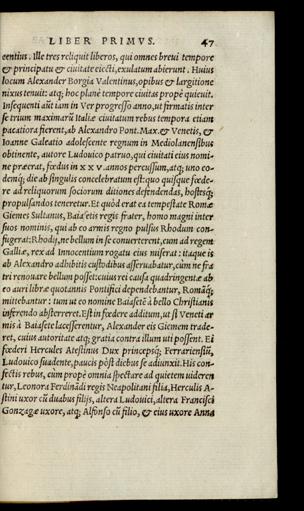 LIBER PRIMVS. 47
centius. Ille tres reliquit liberos, qui omnes breui tempore
& principatu & ciuitate eiecti, exulatum abierunt. Huius
locum Alexander Borgia Valentinus, opibus & largitione
nixus tenuit: atq; hoc planè tempore ciuitas propè quieuit.
Insequenti aũt iam in Ver progresso anno, ut firmatis inter
se trium maximarũ Italiæ ciuitatum rebus tempora etiam
pacatiora fierent, ab Alexandro Pont. Max. & Venetis, &
Ioanne Galeatio adolescente regnum in Mediolanensibus
obtinente, autore Ludouico patruo, qui ciuitati eius nomi-
ne præerat, fœdus in x x v. annos percussum, atq; uno eo-
demq; die ab singulis concelebratum est: quo quisque fœde-
re ad reliquorum sociorum ditiones defendendas, hostesq;
propulsandos teneretur. Et quòd erat ea tempestate Romæ
Giemes Sultanus, Baiasetis regis frater, homo magni inter
suos nominis, qui ab eo armis regno pulsus Rhodum con-
fugerat: Rhodij, ne bellum in se conuerterent, cum ad regem
Galliæ, rex ad Innocentium rogatu eius miserat: itaque is
ab Alexandro adhibitis custodibus asseruabatur, cum ne fra
tri renouare bellum posset: cuius rei causa quadringentæ ab
eo auri libræ quotannis Pontifici dependebantur, Romãq;
mittebantur: tum ut eo nomine Baiasetẽ à bello Christianis
inferendo absterreret. Est in fœdere additum, ut si Veneti ar
mis à Baiasete lacesserentur, Alexander eis Giemem trade-
ret, cuius autoritate atq; gratia contra illum uti possent. Ei
fœderi Hercules Atestinus Dux princepsq; Ferrariensiũ,
Ludouico suadente, paucis pòst diebus se adiunxit. His con-
fectis rebus, cum propè omnia spectare ad quietem uideren
tur, Leonora Ferdinãdi regis Neapolitani filia, Herculis A-
stini uxor cũ duabus filijs, altera Ludouici, altera Francisci
Gonzagæ uxore, atq; Alfonso cũ filio, & eius uxore Anna